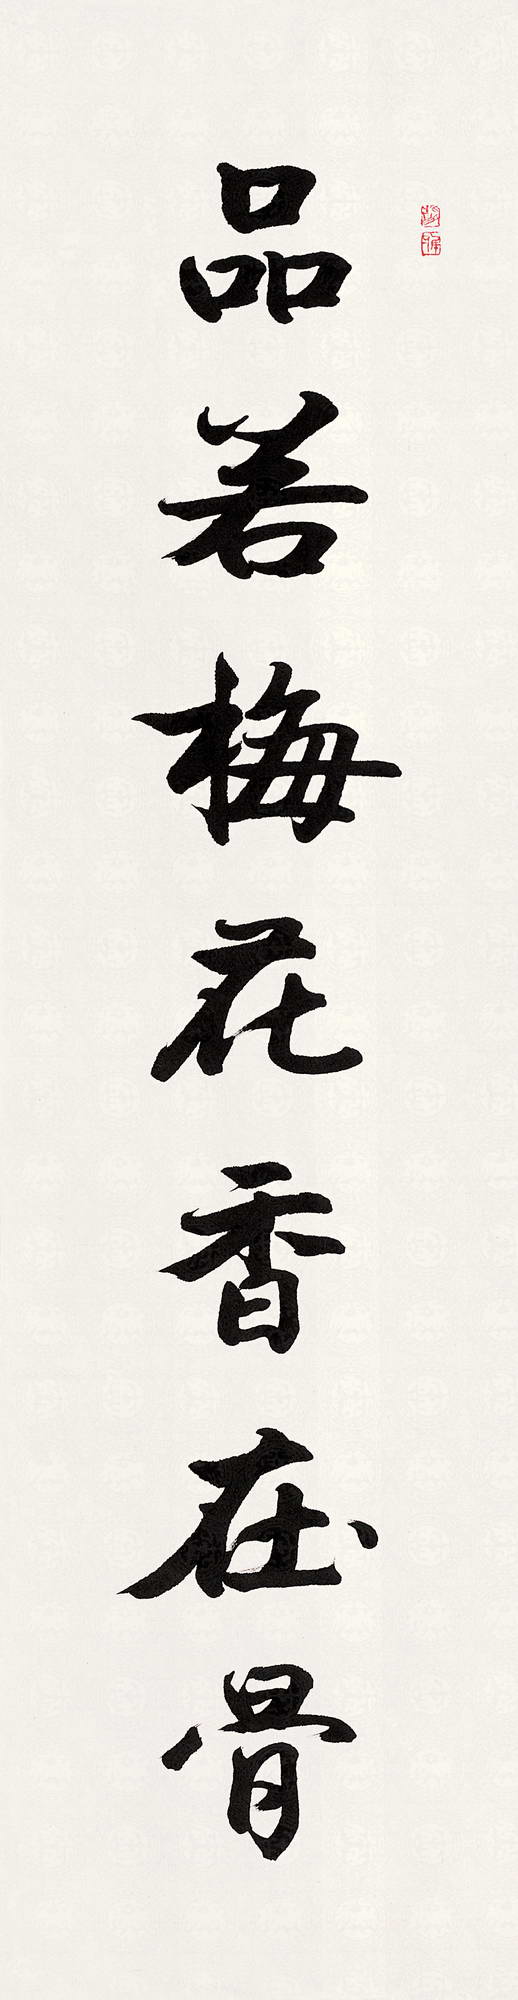 品若梅花香在骨